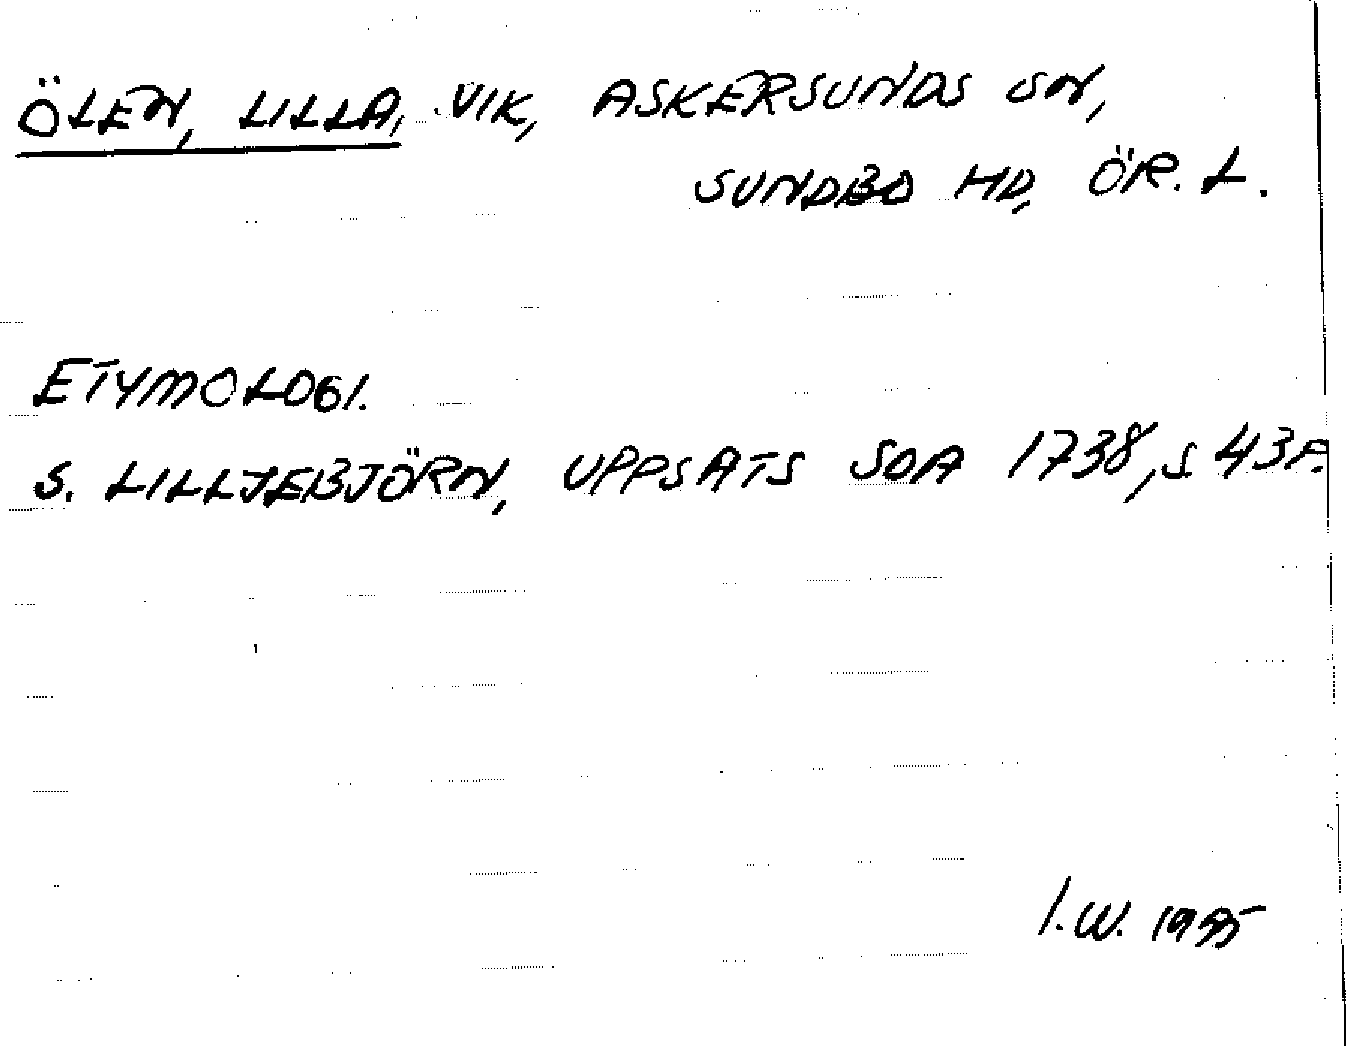 ÖLEN, LILLA, VIK, ASKERSUNDS SN,
SUNDBO HD, ÖR. L.
ETYMOLOGI.
S. LILLJEBJÖRN, UPPSATS SOA 1738, S 43F.
I.W. 1995